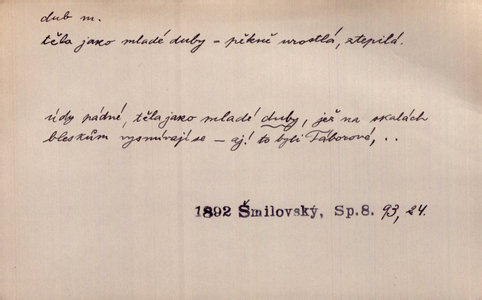 dub m.
těla jako mladé duby – pěkně urostlá, ztepilá.
údy pádné, těla jako mladé duby, jež na skalách
bleskům vysmívají se – aj! to byli Táborové, ..
1892 Šmilovský, Sp.8. 93, 24.